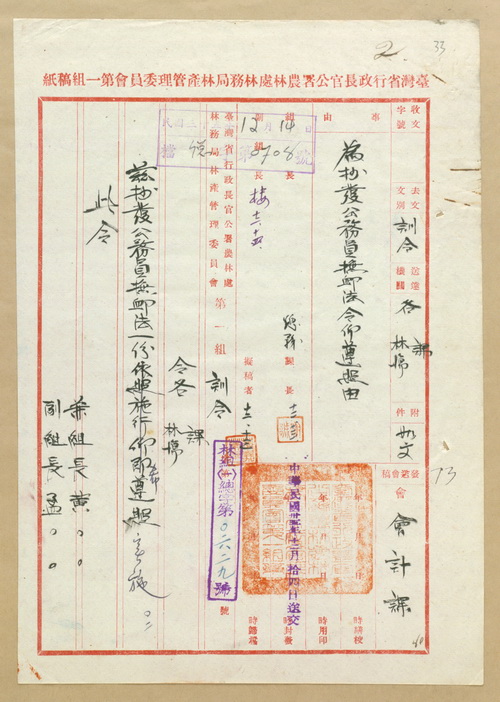 臺灣省行政長官公署農林處林務局林產管理委員會第一組稿紙
2
33
收文
字號
去文
文別
訓令
送達
機關
各
課
林場
附
件
如文
發送會稿
會
會計課
73
事
由
為抄發公務員撫卹法令仰遵照由
組
長
副組長
課長
擬稿者
12月14日
0708號
中華民國卅五年十二月拾四日送交
時繕校
時用印
時封發
時歸檔
臺灣省行政長官公署農林處
林務局林產管理委員會
第一組
訓令
林產(一)總字第0六二九號
號
令各
課
林場
茲抄發公務員撫卹法一份依照施行仰即遵照
此令
兼組長黃○○
副組長孟○○